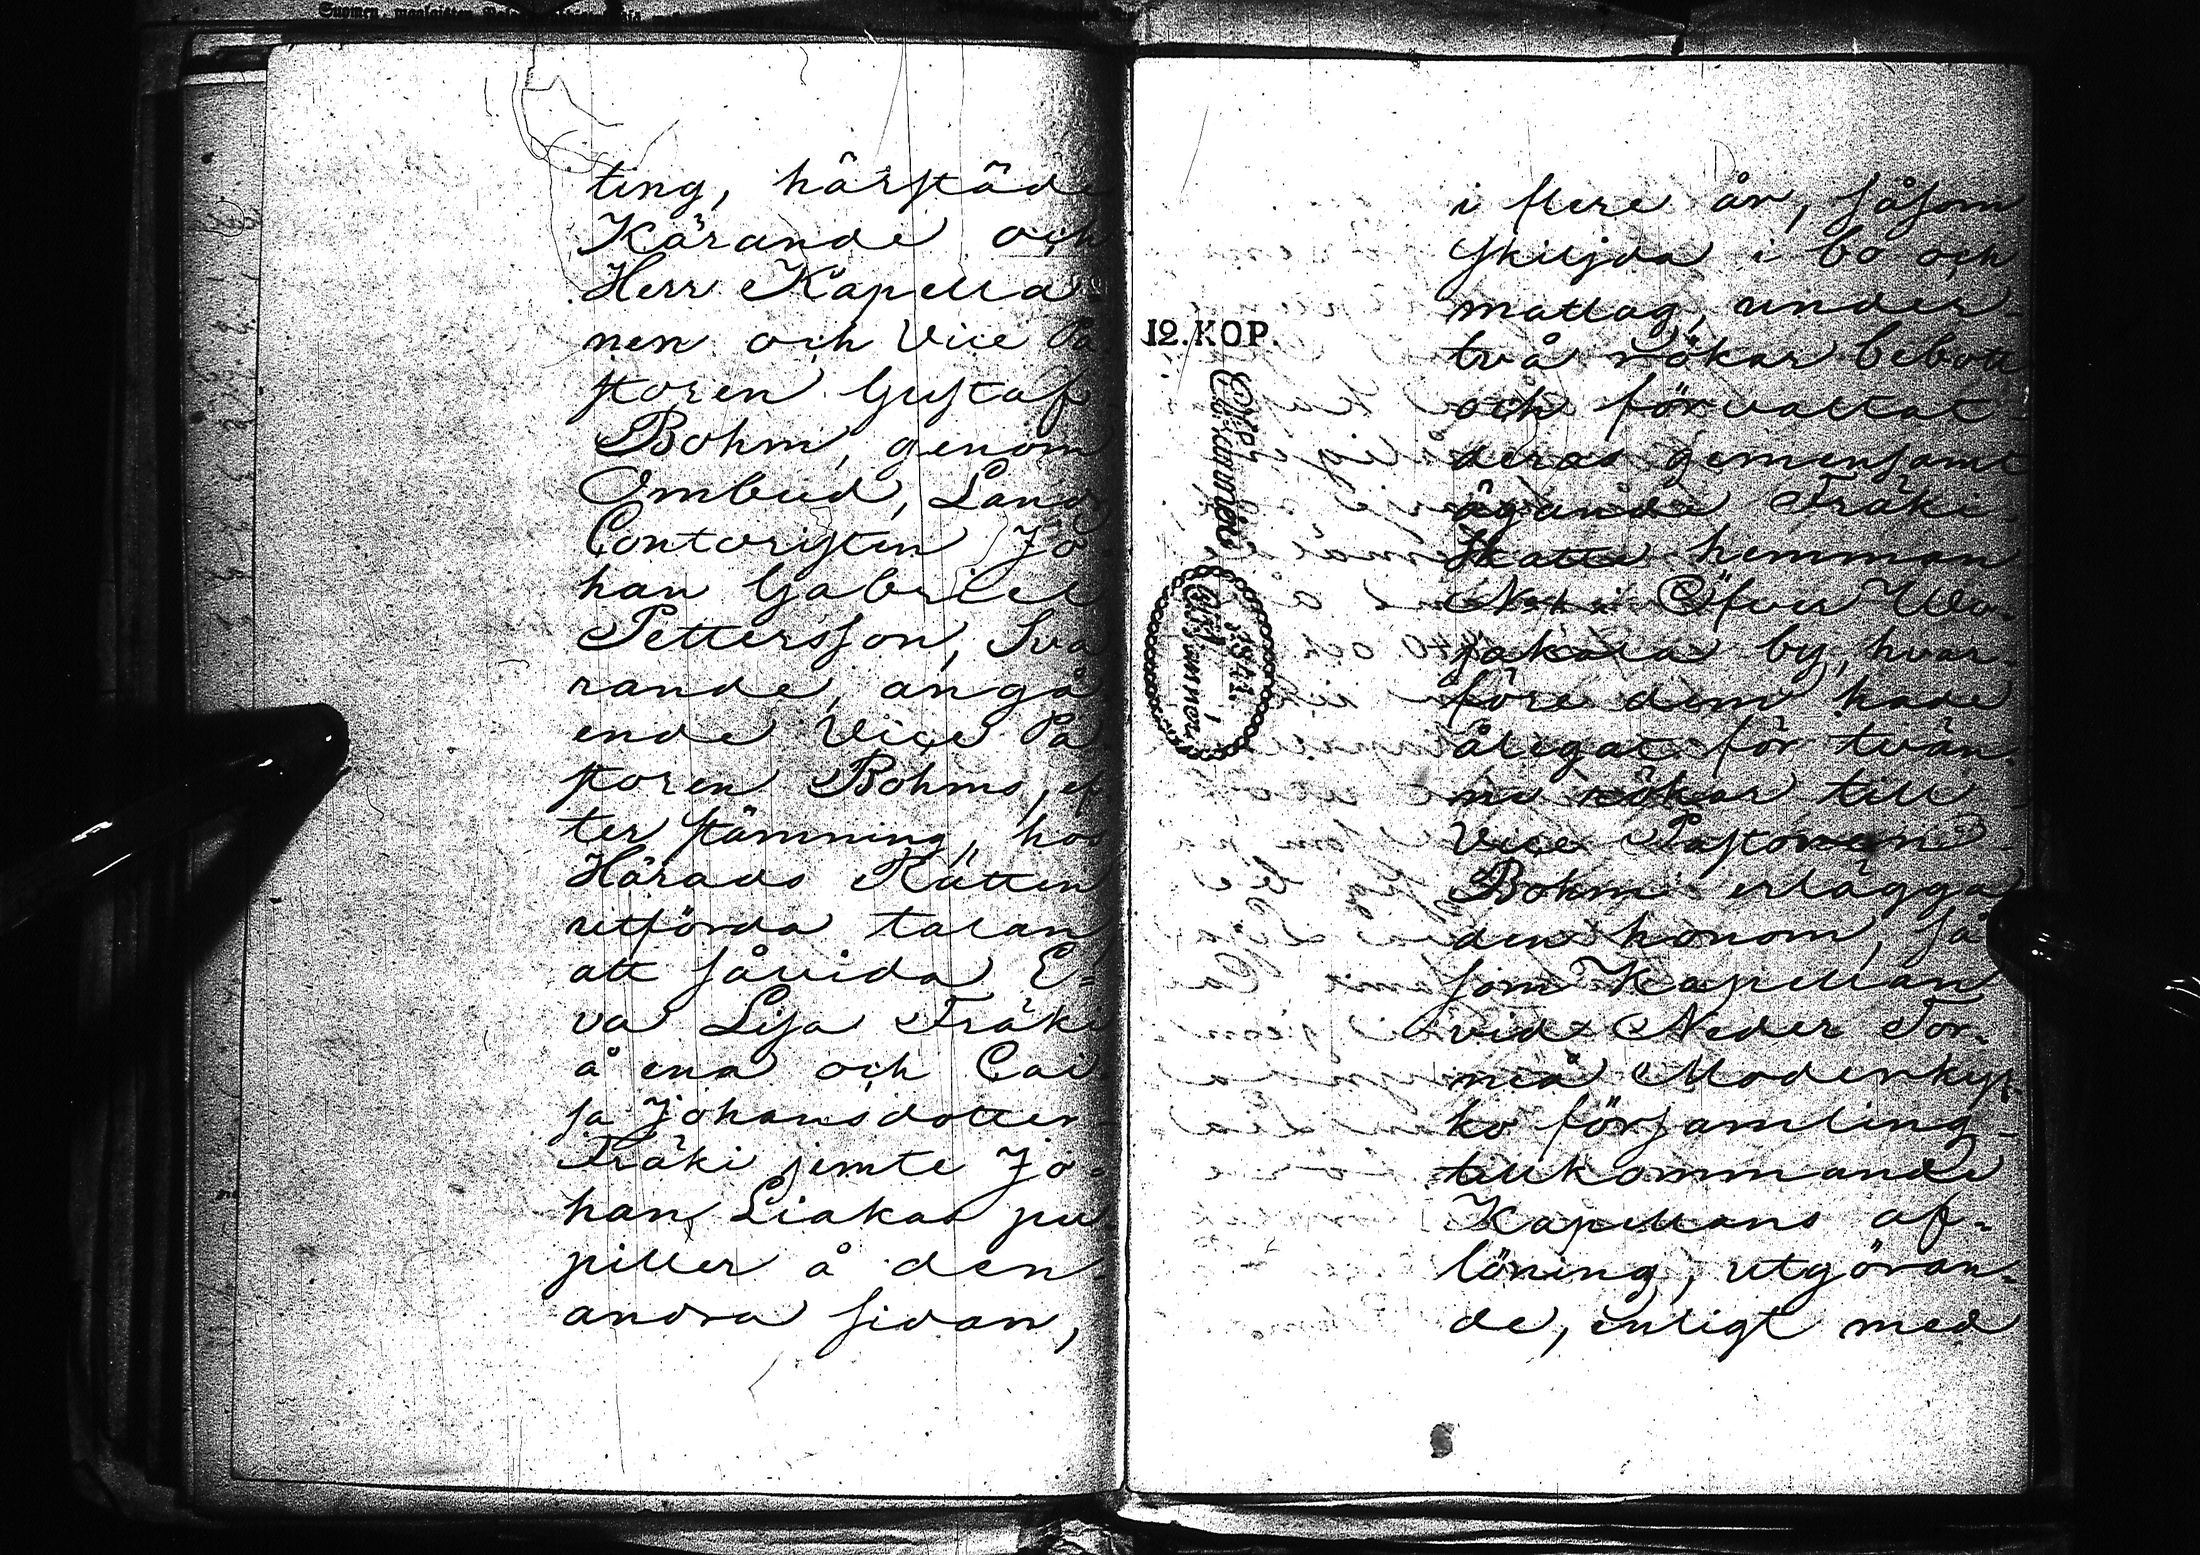 ting, härstäde
Kärande och
Herr Kapella-
nen och Vice Pa
storen Gustaf
Bohm, genom
Ombud, Lands
Contoristen Jo-
han Gabriel
Pettersson, Sva
rande, angå
ende Vice Pa
storen Bohms, ef-
ter stämning, hos
Härads Rätten
utförda talan
att såvida E=
va Lisa Fräki
å ena och Cai
sa Johansdotter
Fräki jemte Jo-
han Liakas pu
piller å den
andra sidan,
12. KOP.
1841.
i flere år, såsom
skiljda i bo och
matlag, under
två rökar bebott
och förvaltat
deras gemensamt
ägande Fräki
Skatte hemman
i Öfver Wo-
jakala by, hvar-
före dem hade
ålegat för tvän-
ne rökar till
Vice Pastoren
Bohm erlägga
den honom, så
som Kapellan
vid Neder Tor-
neå Moderkyr-
ko församling
tillkommande
Kapellans af-
löning, utgöran-
de, enligt med